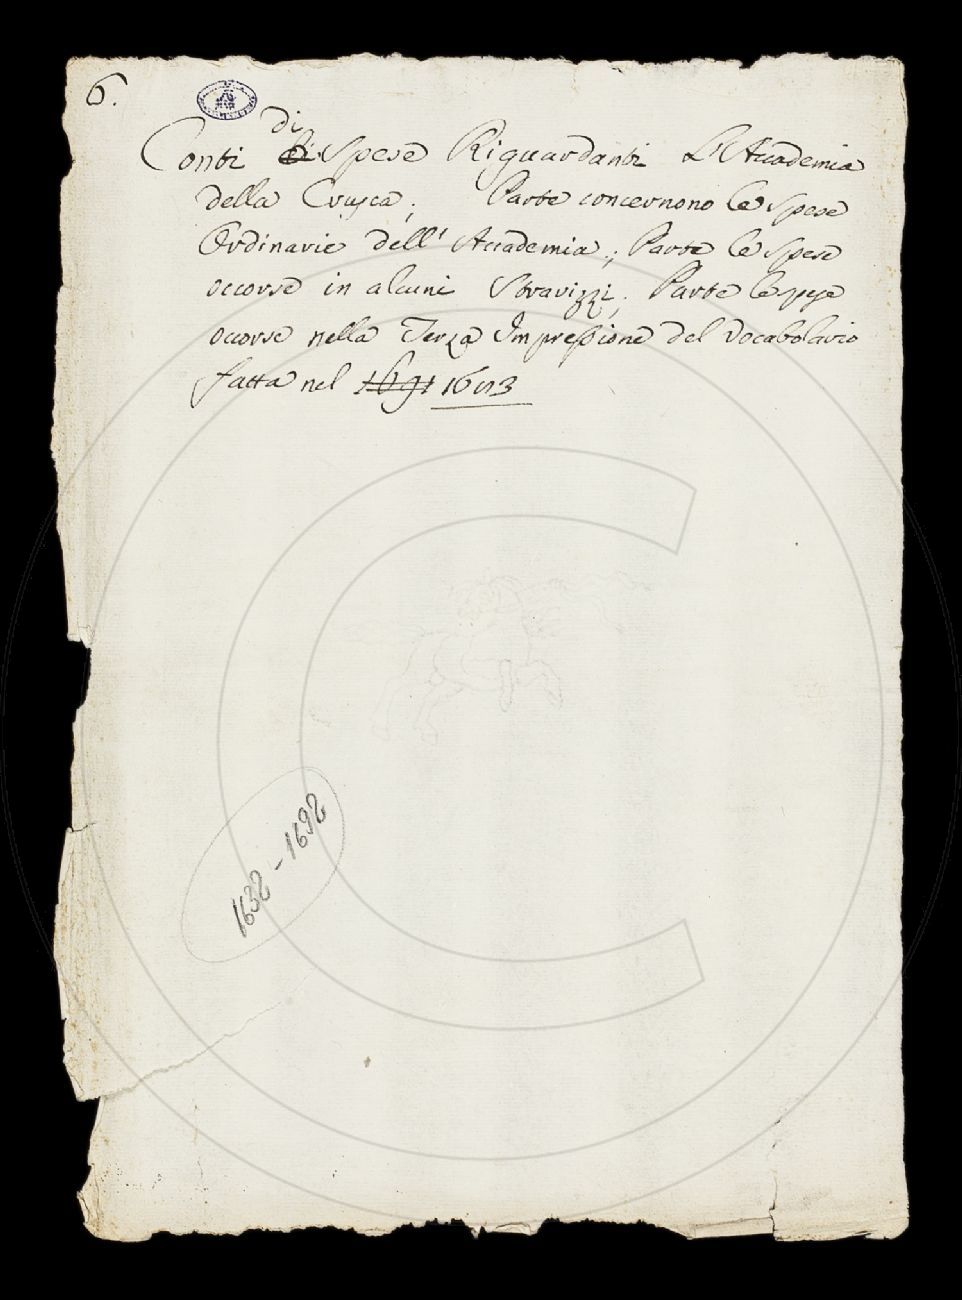 6.
di
Conti di Spese Riguardanti L'Accademia
della Crusca; Parte concernono le Spese
Ordinarie dell' Accademia; Parte le Spese
occorse in alcuni Stravizzi; Parte le spese
occorse nella Terza Impressione del Vocabolario
fatta nel 1691 16
1632 - 1692